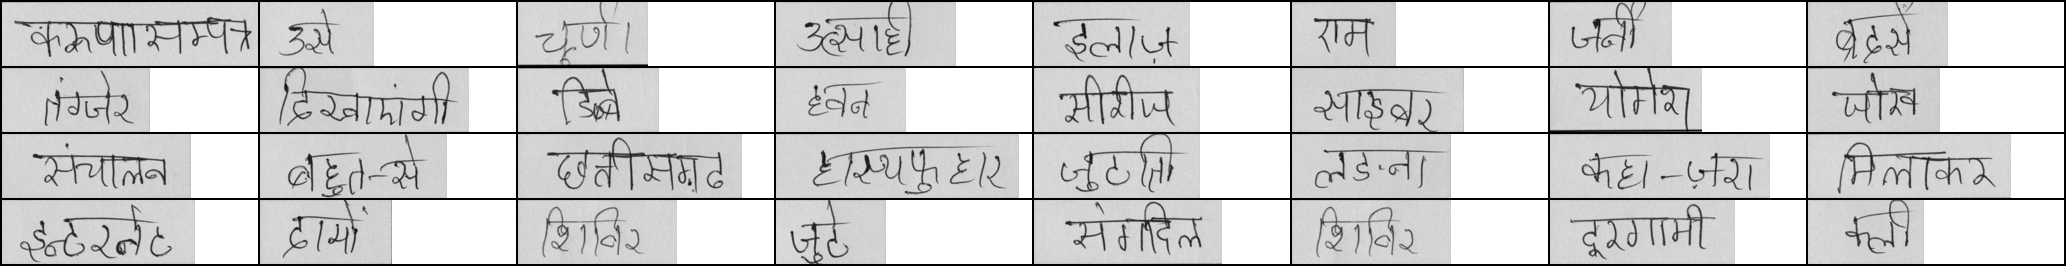 करूणासम्पन्न उसे चूर्ण। उत्साही इलाज़ राम जर्नी
दिखाएंगी डिब्बे हवन सीरीज साइबर योगेश जोख
संचालन बहुत-से छत्तीसगढ हास्यफुहार जुटाती लड़ना कहा-ज़रा मिलाकर
इन्टरनेट दामों शिविर जुटे संगदिल शिविर दूरगामी क्ली